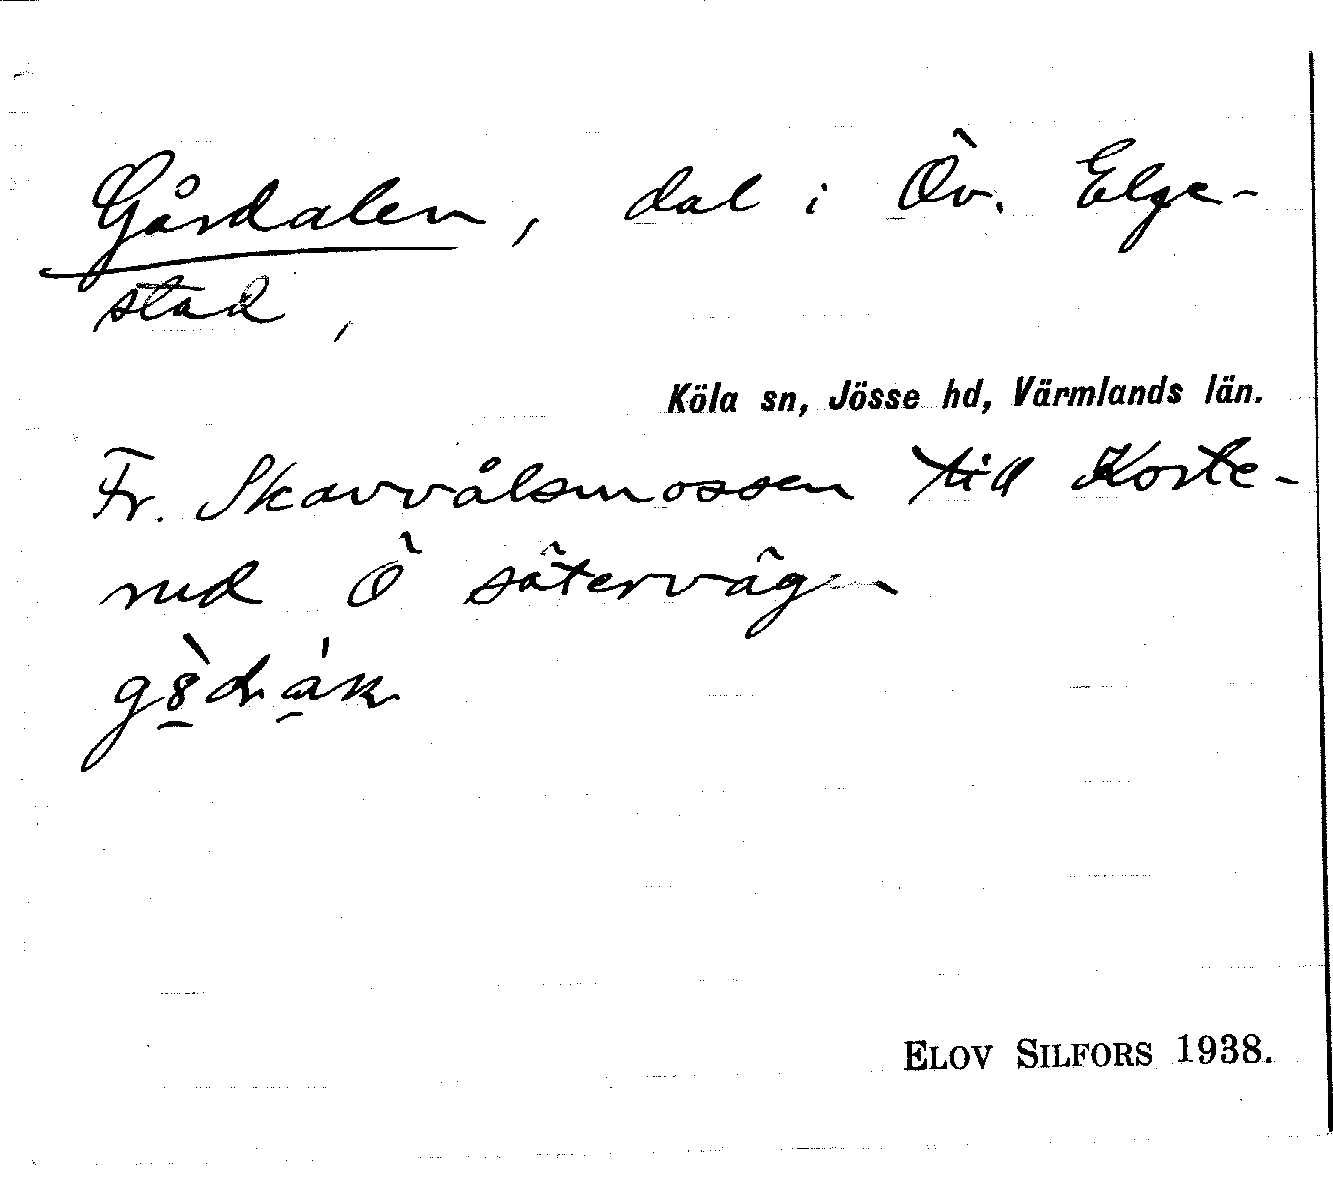 Gårdalen, dal i Öv. Elge-
stad,
Köla sn, Jösse hd, Värmlands län.
Fr. Skavvålsmossen till Korte-
rud Ö sätervägen
ELOV SILFORS 1938.